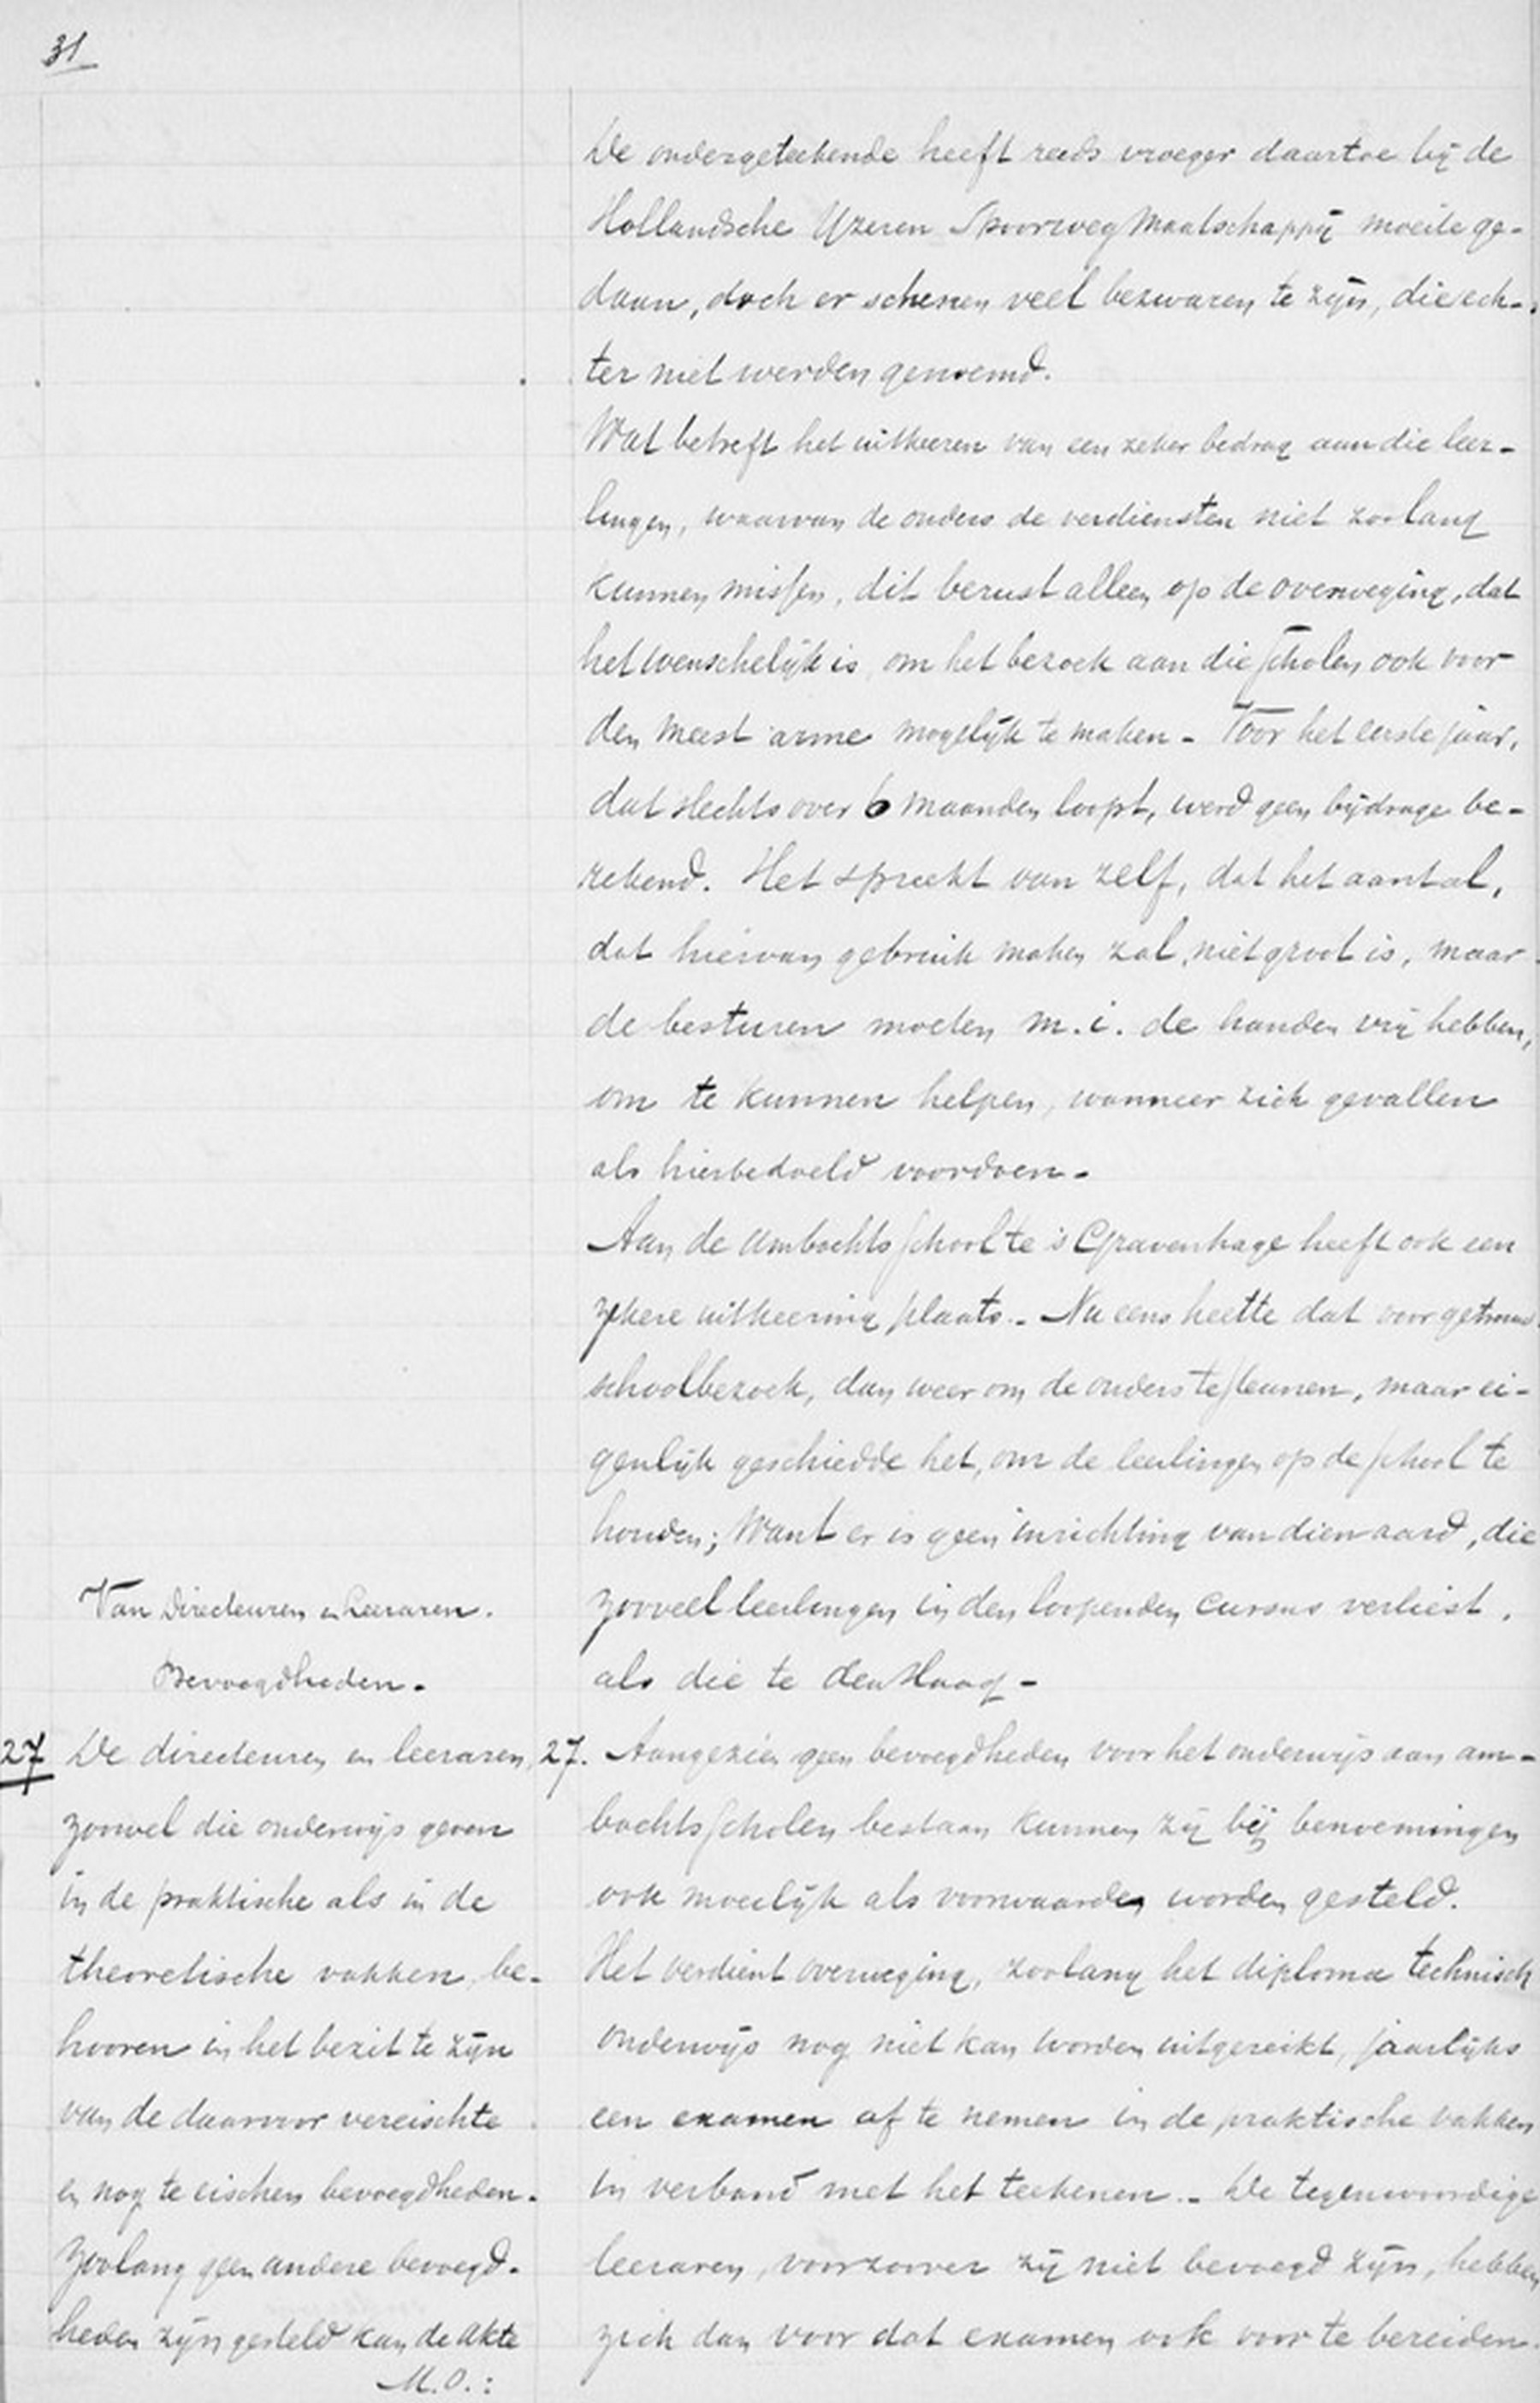 31
De ondergeteekende heeft reeds vroeger daartoe bij de
Hollandsche IJzeren Spoorweg Maatschappij moeite ge-
daan, doch er schenen veel bezwaren te zijn, die ech-
ter niet werden genoemd.
Wat betreft het uitkeeren van een zeker bedrag aan die leer-
lingen, waarvan de ouders de verdiensten niet zoolang
kunnen missen, dit berust alleen op de overweging, dat
het wenschelijk is, om het bezoek aan die scholen ook voor
den meest arme mogelijk te maken - Voor het eerste jaar,
dat slechts over 6 maanden loopt, werd geen bijdrage be-
rekend. Het spreekt van zelf, dat het aantal,
dat hiervan gebruik maken zal, niet groot is, maar
de besturen moeten m.i. de handen vrij hebben,
om te kunnen helpen, wanneer zich gevallen
als hierbedoeld voordoen -
Aan de ambachtsschool te 's Gravenhage heeft ook een
zekere uitkeering plaats. - Nu eens heette dat voor getrouw
schoolbezoek, dan weer om de ouders te steunen, maar ei-
genlijk geschiedde het, om de leerlingen op de school te
houden; Want er is geen inrichting van dien aard, die
zooveel leerlingen in den loopenden cursus verliest,
als die te den Haag -
Van Directeuren en Leeraren.
Bevoegdheden -
27 De directeuren en leeraren,
zoowel die onderwijs geven
in de praktische als in de
theoretische vakken, be-
hooren in het bezit te zijn
van de daarvoor vereischte
en nog te eischen bevoegdheden.
Zoolang geen andere bevoegd-
heden zijn gesteld kan de akte
M.O.:
27. Aangezien geen bevoegdheden voor het onderwijs aan am-
bachtsscholen bestaan kunnen zij bij benoemingen
ook moeilijk als voorwaarden worden gesteld.
Het verdient overweging, zoolang het diploma technisch
onderwijs nog niet kan worden uitgereikt, jaarlijks
een examen af te nemen in de praktische vakken
in verband met het teekenen. - De tegenwoordige
leeraren, voorzoover zij niet bevoegd zijn, hebben
zich dan voor dat examen ook voor te bereiden.